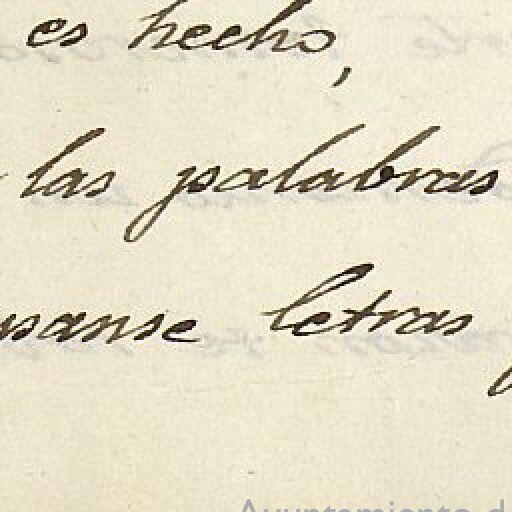 es hecho,
las palabras
usanse letras
Ayuntamiento de